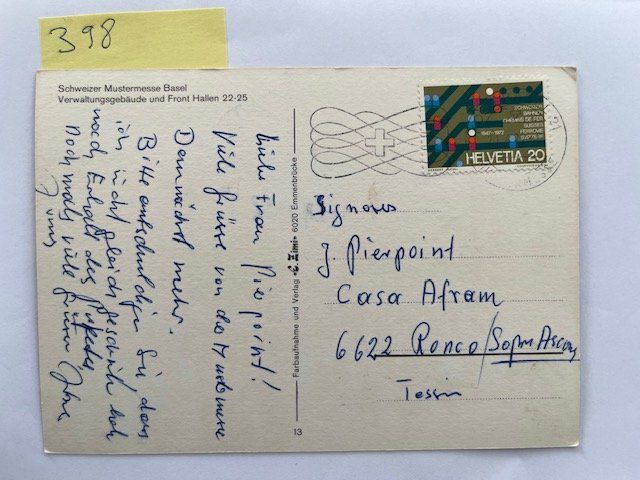 398
Schweizer Mustermesse Basel
Verwaltungsgebäude und Front Hallen 22-25
Liebe Frau Pierpoint!
Viele Grüsse von der Mustermesse
Demnächst mehr.
Bitte entschuldigen Sie, dass
ich nicht gleich geschrieb hab
nach Erhalt des Paketes
Nochmals viele Grüsse Ihre
Farbaufnahme und Verlag 6020 Emmenbrücke
13
SCHWEIZER
BAHNEN
CHEMINS DE FER
SUISSES
FERROVIE
SVIZZERE
1847-1972
HELVETIA 20
J. Pierpoint
Casa Afram
6622 Ronco/Sopra Ascona
Tessin